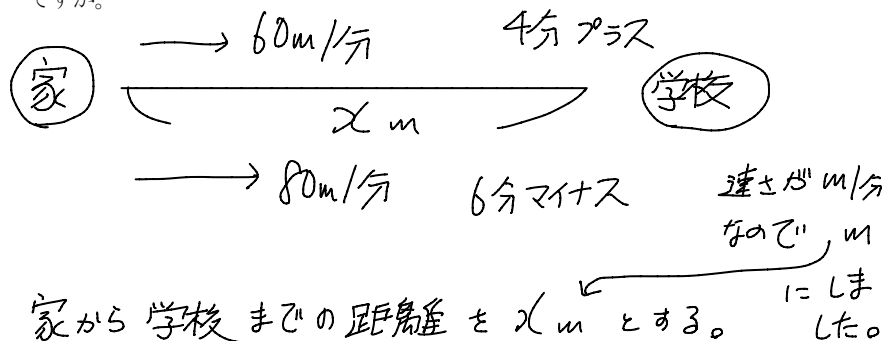 ですか。
60m/分 4分プラス
家 学校
x m
80m/分 6分マイナス
速さがm/分
なので、m
にしま
した。
家から学校までの距離をxmとする。